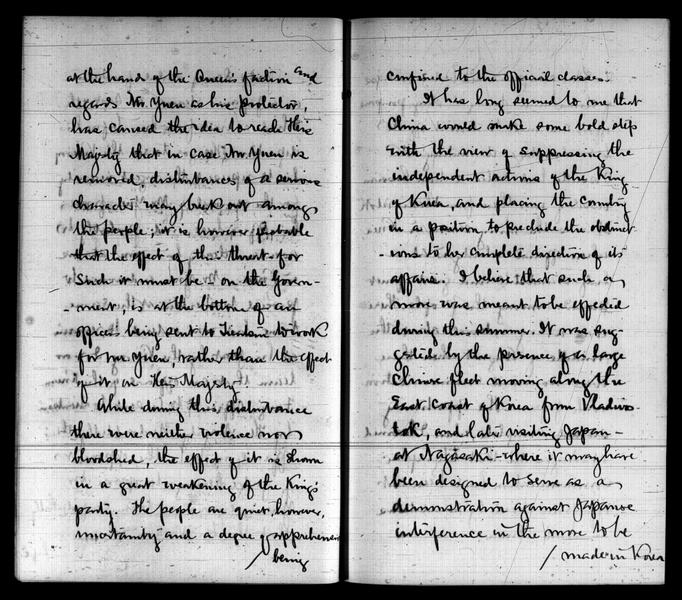 at the hands of the Queen's faction and
regards Mr. Yuen as his protector,
has caused the idea to reach His
Majesty that in case Mr. Yuen is
removed, disturbances of a serious
character may break out among
the people; it is however probable
that the effect of this threat - for
such it must be - on the Govern-
-ment, is at the bottom of an
officer being sent to Tientsin to work
for Mr. Yuen, rather than the effect
of it on His Majesty.
While during this disturbance
there were neither violence nor
bloodshed, the effect of it is shown
in a great weakening of the King's
party. The people are quiet, however,
uncertainty and a degree of apprehension
/ being
confined to the official classes.
It has long seemed to me that
China would make some bold step
with the view of suppressing the
independent actions of the King
of Korea, and placing the country
in a position to preclude the obstruct-
-ions to her complete direction of its
affairs. I believe that such a
move was meant to be effected
during this summer. It was sug-
gested by the presence of a large
Chinese fleet moving along the
East Coast of Korea from Vladivo-
stok, and late visiting Japan -
at Nagasaki - where it may have
been designed to serve as a
demonstration against Japanese
interference in the move to be
/ made in Korea